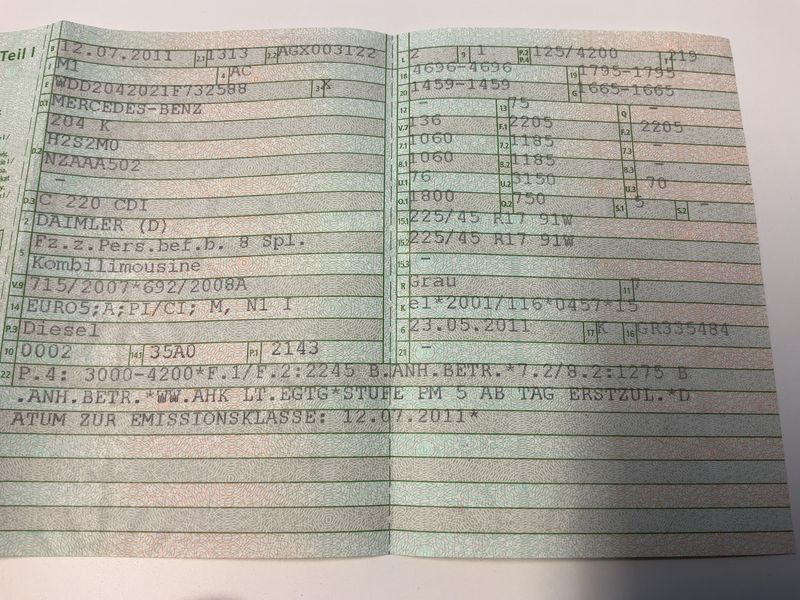 Teil I
B 12.07.2011 2.1 1313 2.2 AGX003122
J M1 4 AC
E WDD2042021F732588 3 X
D.1 MERCEDES-BENZ
204 K
D.2 H2S2M0
NZAAA502
–
D.3 C 220 CDI
2 DAIMLER (D)
5 Fz.z.Pers.bef.b. 8 Spl.
Kombilimousine
V.9 715/2007*692/2008A
14 EURO5;A;PI/CI; M, N1 I
P.3 Diesel
10 0002 14.1 35A0 P.1 2143
L 2 9 1 P.2 P.4 125/4200 T 219
18 4696-4696 19 1795-1795
20 1459-1459 G 1665-1665
12 – 13 75 Q –
V.7 136 F.1 2205 F.2 2205
7.1 1060 7.2 1185 7.3 –
8.1 1060 8.2 1185 8.3 –
U.1 76 U.2 3150 U.3 70
O.1 1800 O.2 750 S.1 5 S.2 –
15.1 225/45 R17 91W
15.2 225/45 R17 91W
15.3 –
R Grau 11 7
K e1*2001/116*0457*15
6 23.05.2011 17 K 16 GR335484
21 –
22 P.4: 3000-4200*F.1/F.2:2245 B.ANH.BETR.*7.2/8.2:1275 B
.ANH.BETR.*WW.AHK LT.EGTG*STUFE PM 5 AB TAG ERSTZUL.*D
ATUM ZUR EMISSIONSKLASSE: 12.07.2011*